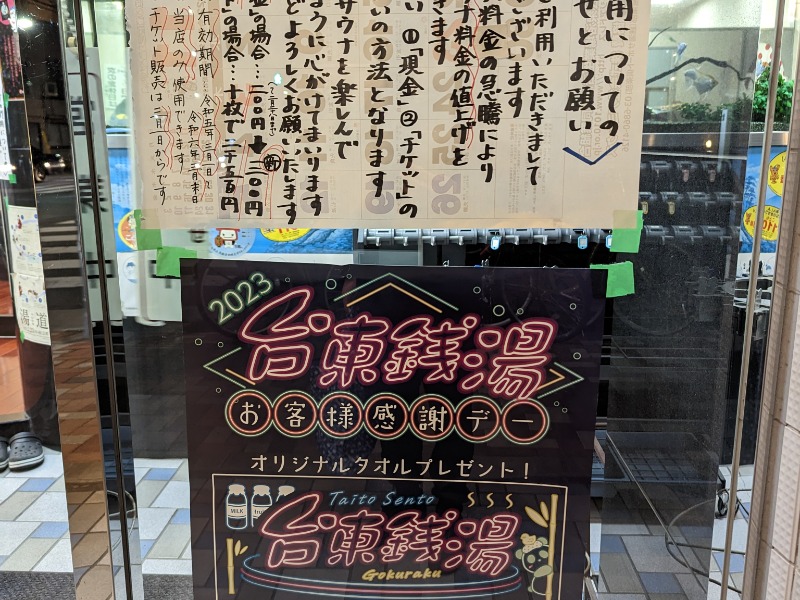 用についての
せとお願い
利用いただきまして
ございます
料金の急騰により
ナ料金の値上げを
きます
い①「現金」②「チケット」の
いの方法となります
サウナを楽しんで
ように心がけてまいります
どよろしくお願いいたします
金」の場合…二〇〇円→三〇〇円
トの場合…十枚で二千五百円
有効期間…令和五年三月一日〜
令和六年二月末日
当店のみ使用できます
チケット販売は三月一日からです
2023
台東銭湯
お客様感謝デー
オリジナルタオルプレゼント!
Taito Sento
MILK
台東銭湯
Gokuraku
湯道